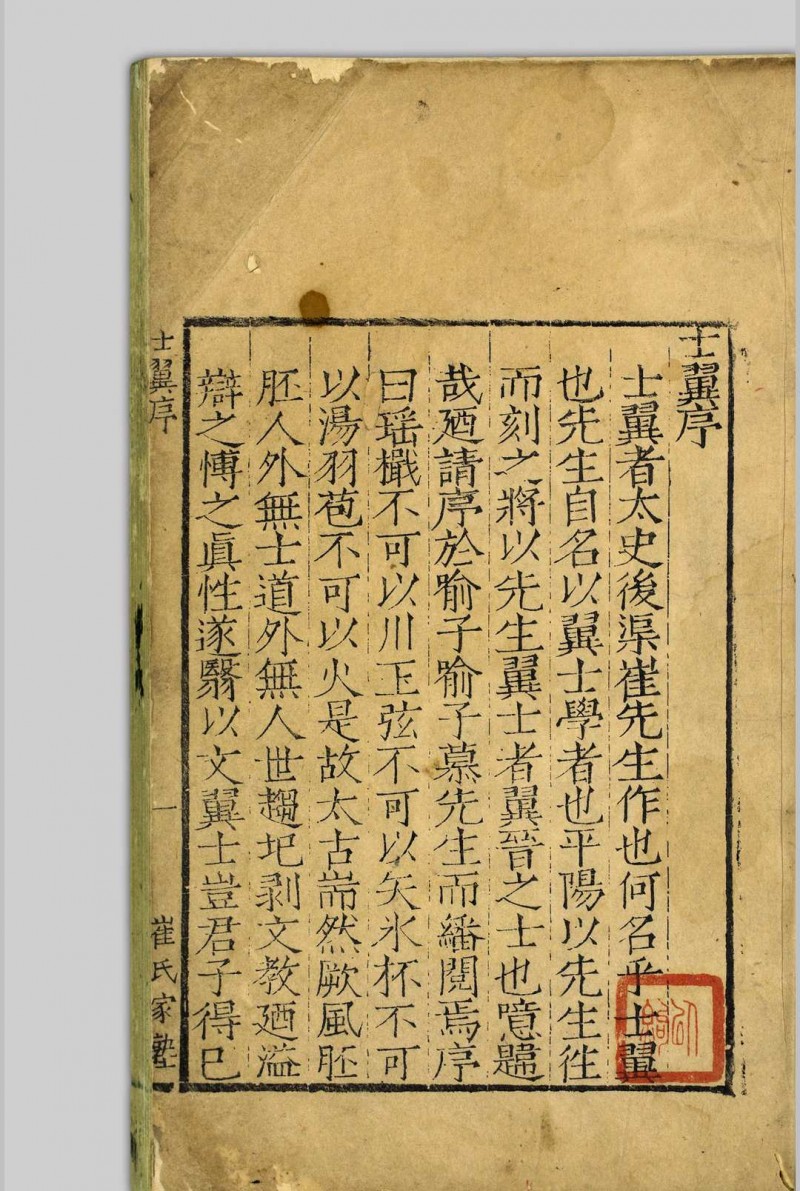 士翼序
士翼者太史後渠崔先生作也何名乎士翼
也先生自名以翼士學者也平陽以先生徃
而刻之將以先生翼士者翼晉之士也噫韙
哉廼請序於喻子喻子慕先生而繙閱焉序
曰瑶檝不可以川玉弦不可以矢氷杯不可
以湯羽苞不可以火是故太古耑然厥風胚
胚人外無士道外無人世趨圮剥文教廼溢
辯之愽之眞性遂翳以文翼士豈君子得已
士翼序
一
崔氏家塾